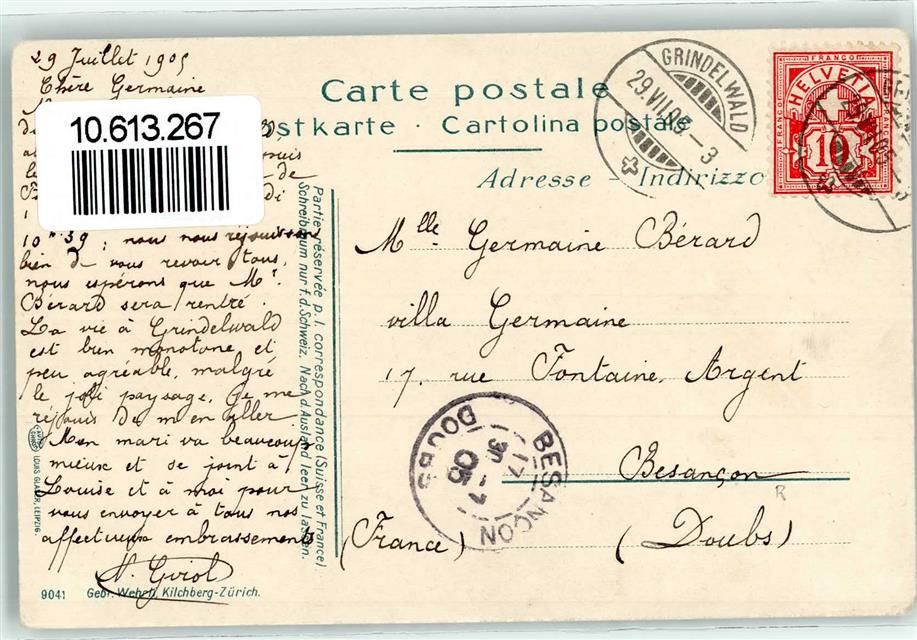 29 Juillet 1905
Chère Germaine
10.613.267
de
10h 39 ; nous nous réjouissons
bien de vous revoir tous,
nous espérons que Mr
Bérard sera rentré.
La vie à Grindelwald
est bien monotone et
peu agréable, malgré
le joli paysage. Je me
réjouis de m'en aller
Mon mari va beaucoup
mieux et se joint à
Louise et à moi pour
vous envoyer à tous nos
affectueux embrassements
Carte postale
ostkarte · Cartolina postale
Adresse - Indirizzo
GRINDELWALD
29.VII.05.-3
FRANCO
HELVETIA
10
Mlle Germaine Bérard
villa Germaine
17. rue Fontaine, Argent
Besançon
(Doubs)
(France)
BESANÇON
DOUBS
17
30 -7
05
Partie réservée p. l. correspondance (Suisse et France)
Schreibraum nur f. d. Schweiz. Nach d. Ausland leer zu lassen.
LOUIS GLASER, LEIPZIG.
9041 Gebr. Wehrli, Kilchberg-Zürich.